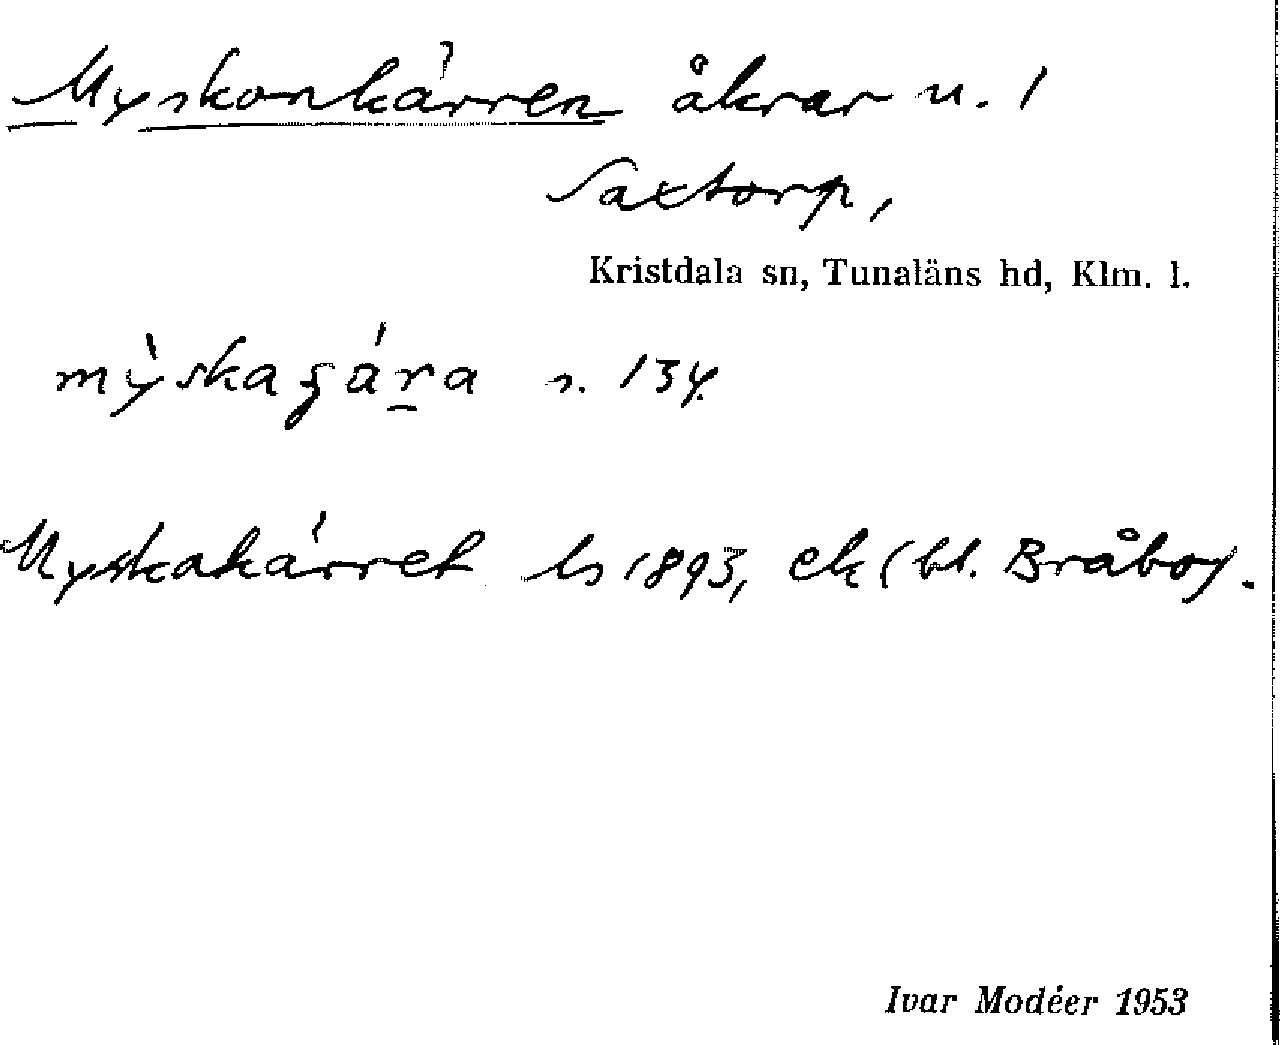 Myskonkärren åkrar u. 1
Saxtorp,
Kristdala sn, Tunaläns hd, Klm. l.
mỳskaʂára s. 134.
Myskakärret ls 1893, ek (bl. Bråbo).
Ivar Modéer 1953